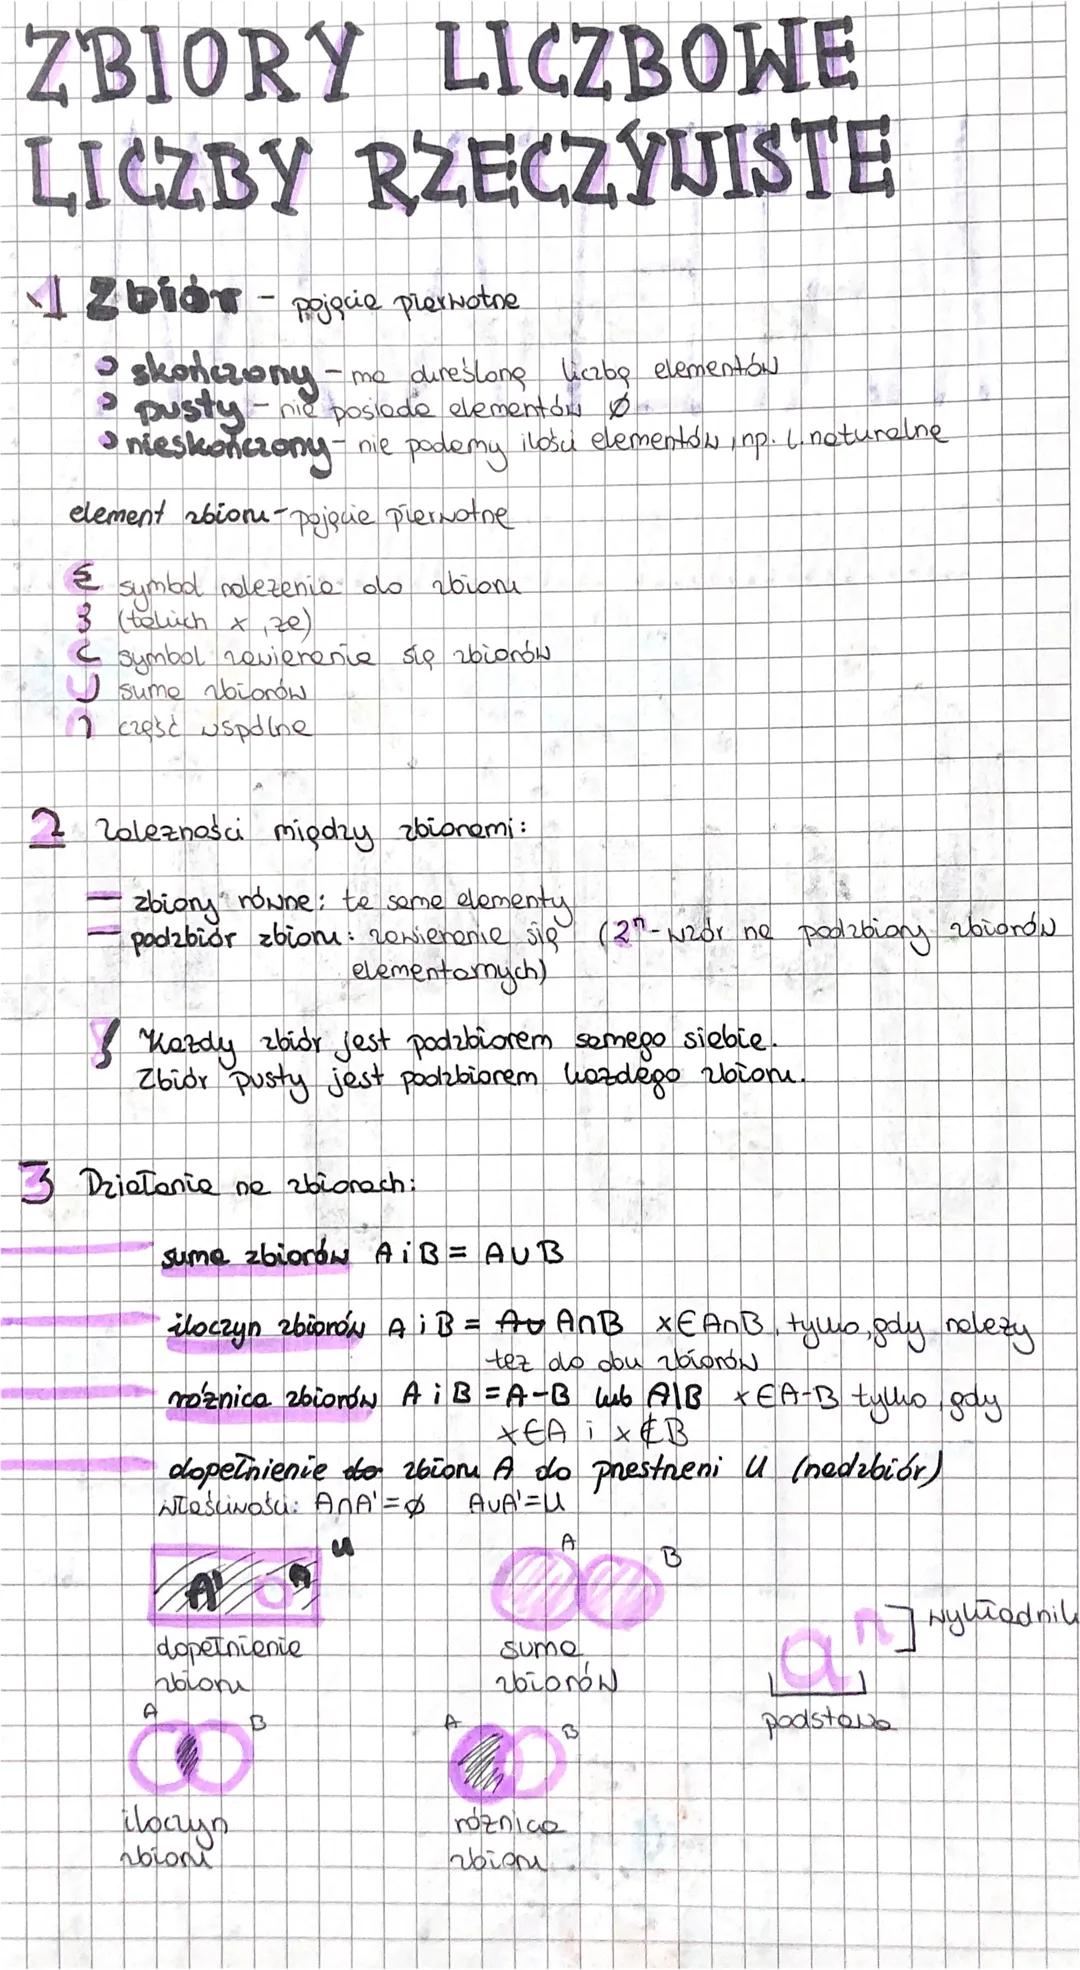 ZBIORY LICZBOWE
LICZBY RZECZYWISTE
1 Zbiór - pojęcie pierwotne
skończony - ma określoną liczbę elementów
pusty - nie posiada elementów ∅
nieskończony - nie podamy ilości elementów, np. l. naturalne
element zbioru - pojęcie pierwotne
∈ symbol należenia do zbioru
∃ (takich x, że)
⊂ symbol zawierania się zbiorów
∪ suma zbiorów
∩ część wspólna
2 Zależności między zbiorami:
zbiory równe: te same elementy
podzbiór zbioru: zawieranie się (2ⁿ - wzór na podzbiory zbiorów
elementarnych)
! Każdy zbiór jest podzbiorem samego siebie.
Zbiór pusty jest podzbiorem każdego zbioru.
3 Działania na zbiorach:
suma zbiorów A i B = A∪B
iloczyn zbiorów A i B = A∪ A∩B x∈A∩B, tylko, gdy należy
też do obu zbiorów
różnica zbiorów A i B = A-B lub A\B x∈A-B tylko, gdy
x∈A i x∉B
dopełnienie do zbioru A do przestrzeni U (nadzbiór)
właściwości: A∩A'=∅ A∪A'=U
A' A U
A B
dopełnienie
zbioru
suma
zbiorów
aⁿ wykładnik
podstawa
A B
A B
iloczyn
zbioru
różnica
zbioru